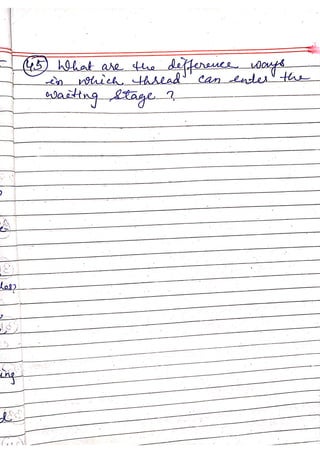 45 What are the difference ways
in which thread can enter the
waiting stage ?
ing